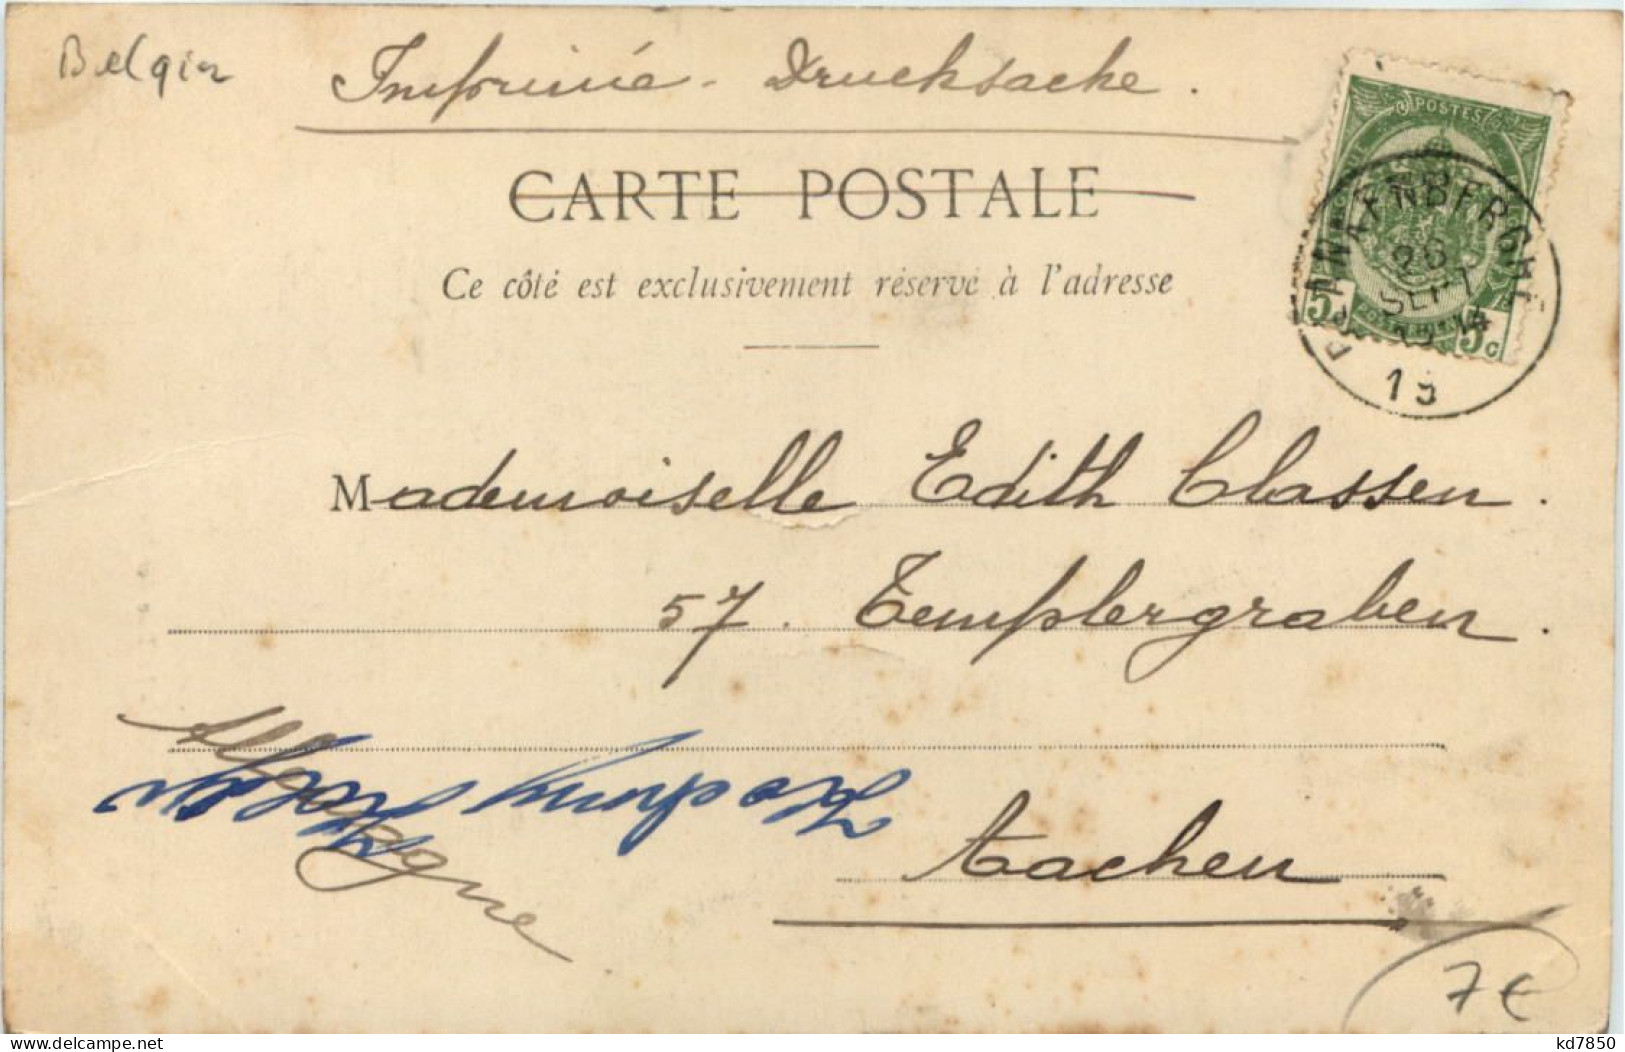 Belgien
Imprimé - Drucksache.
CARTE POSTALE
POSTES
BLANKENBERGHE
26
SEPT
14
19
5c 5c
Ce côté est exclusivement réservé à l'adresse
Mademoiselle Edith Classen.
57. Templergraben.
Allemagne
Aachen
7€
delcampe.net
kd7850